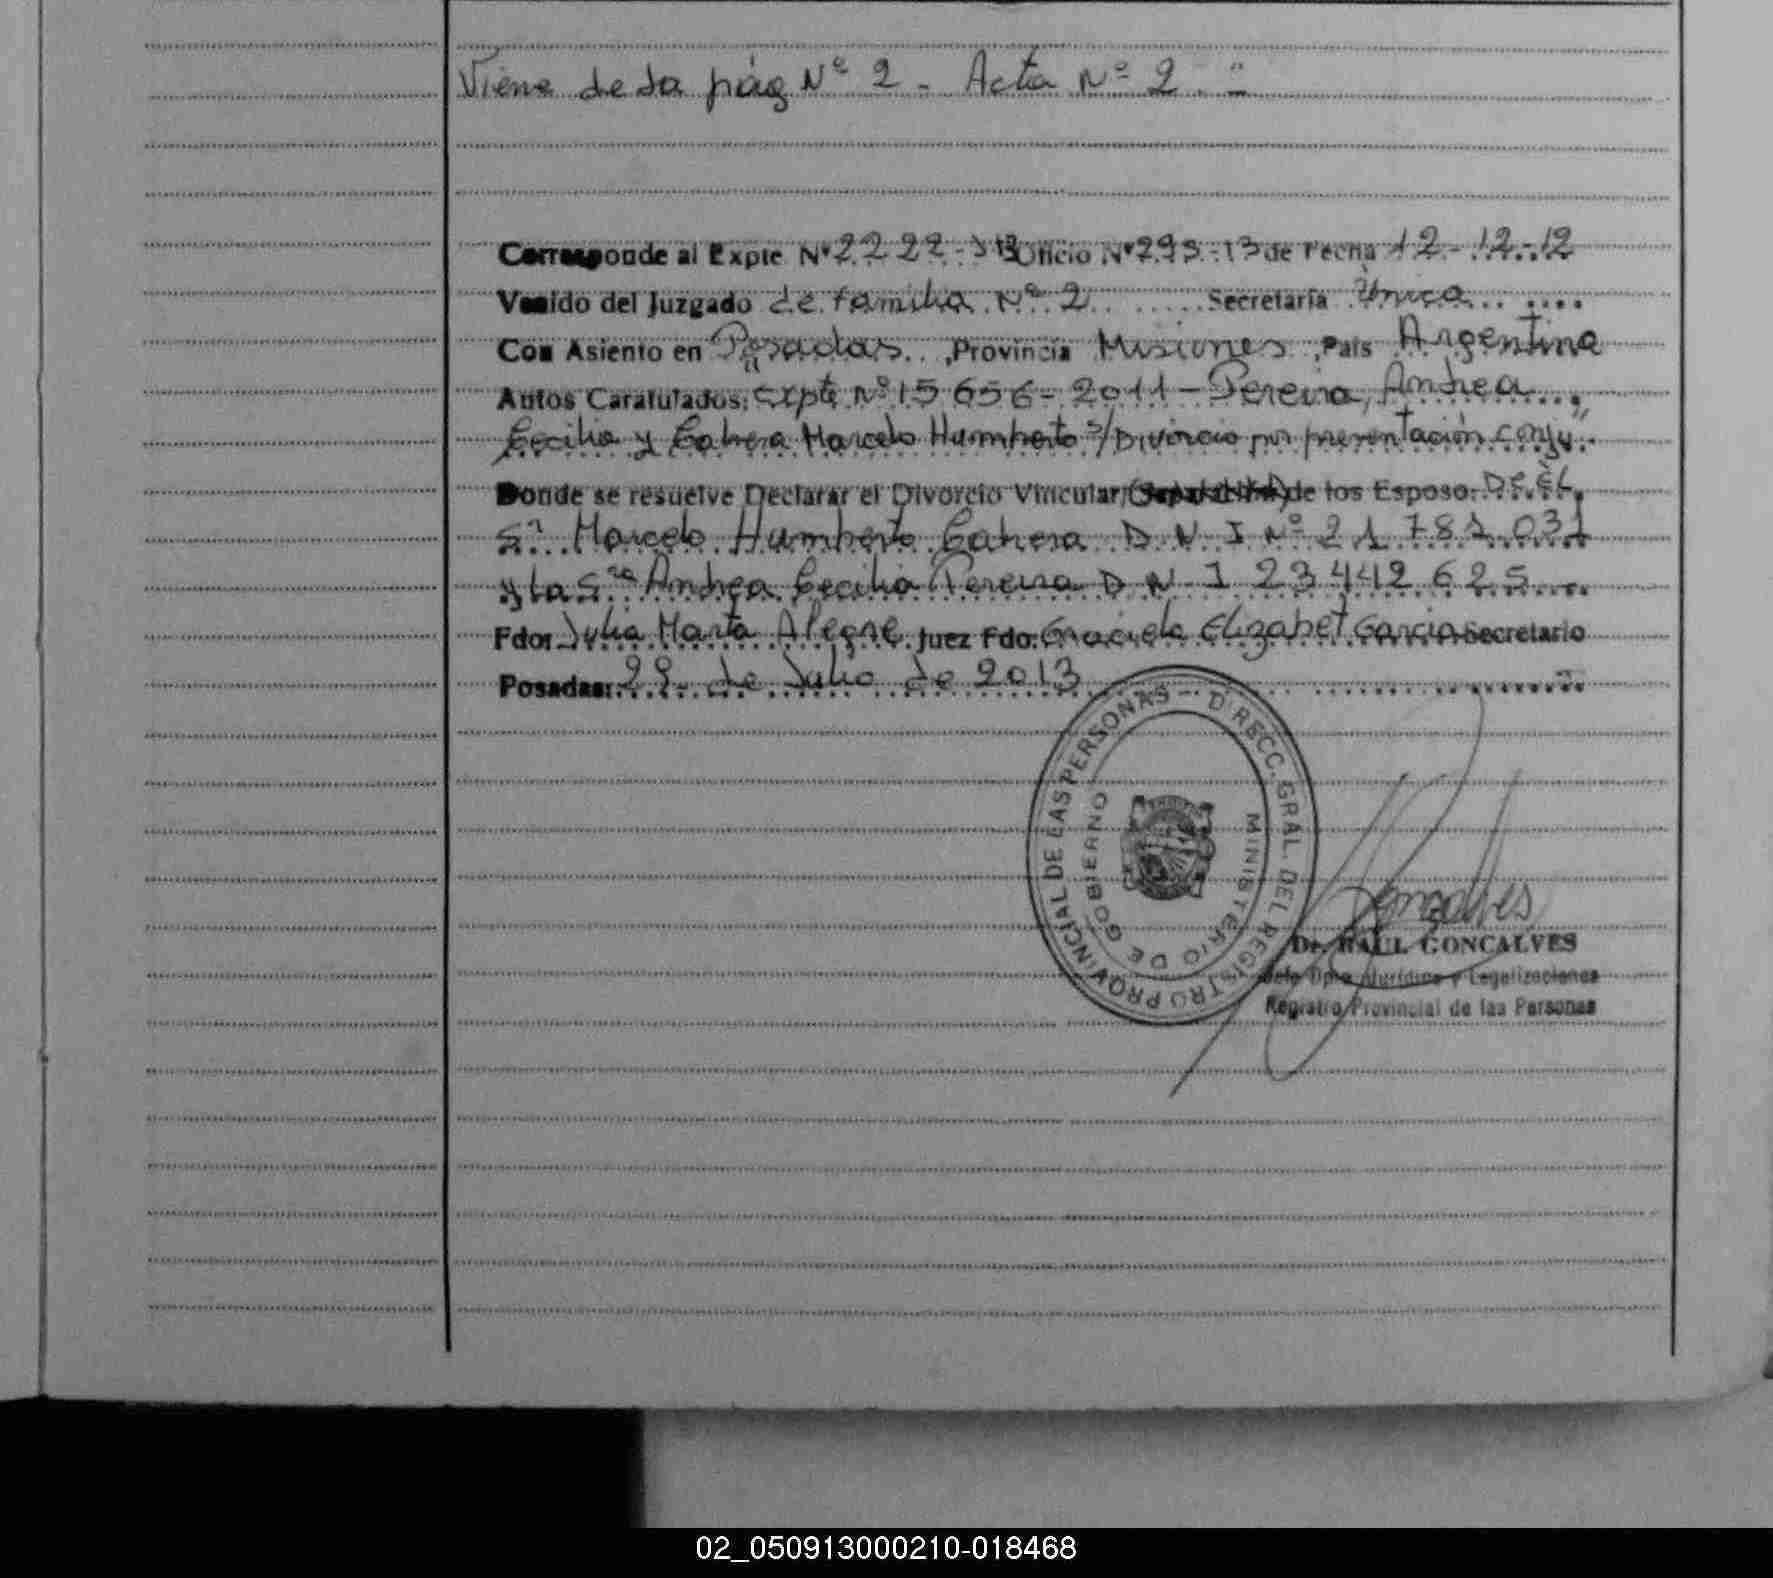 Viene de la pág Nº 2 - Acta Nº 2. =
Corresponde al Expte Nº 2222-313 Oficio Nº 293-13 de Fecha 12-12-12
Venido del Juzgado de familia Nº 2 Secretaría Única
Con Asiento en Posadas, Provincia Misiones, País Argentina
Autos Caratulados: Expte Nº 15656-2011 - Pereira, Andrea
Cecilia y Cabrera Marcelo Humberto s/ Divorcio por presentación conju"
Donde se resuelve Declarar el Divorcio Vincular de los Esposo: DE ÉL
Sr. Marcelo Humberto Cabrera D N I Nº 21 781 031
y la Sra Andrea Cecilia Pereira D N I 23 442 625
Fdo: Julia Marta Alegre Juez Fdo: Graciela Elizabet Garcia Secretario
Posadas: 29 de Julio de 2013
DIRECC. GRAL. DEL REGISTRO PROVINCIAL DE LAS PERSONAS
MINISTERIO DE GOBIERNO
Goncalves
Dr. RAUL GONCALVES
Jefe Dpto. Jurídico y Legalizaciones
Registro Provincial de las Personas
02_050913000210-018468